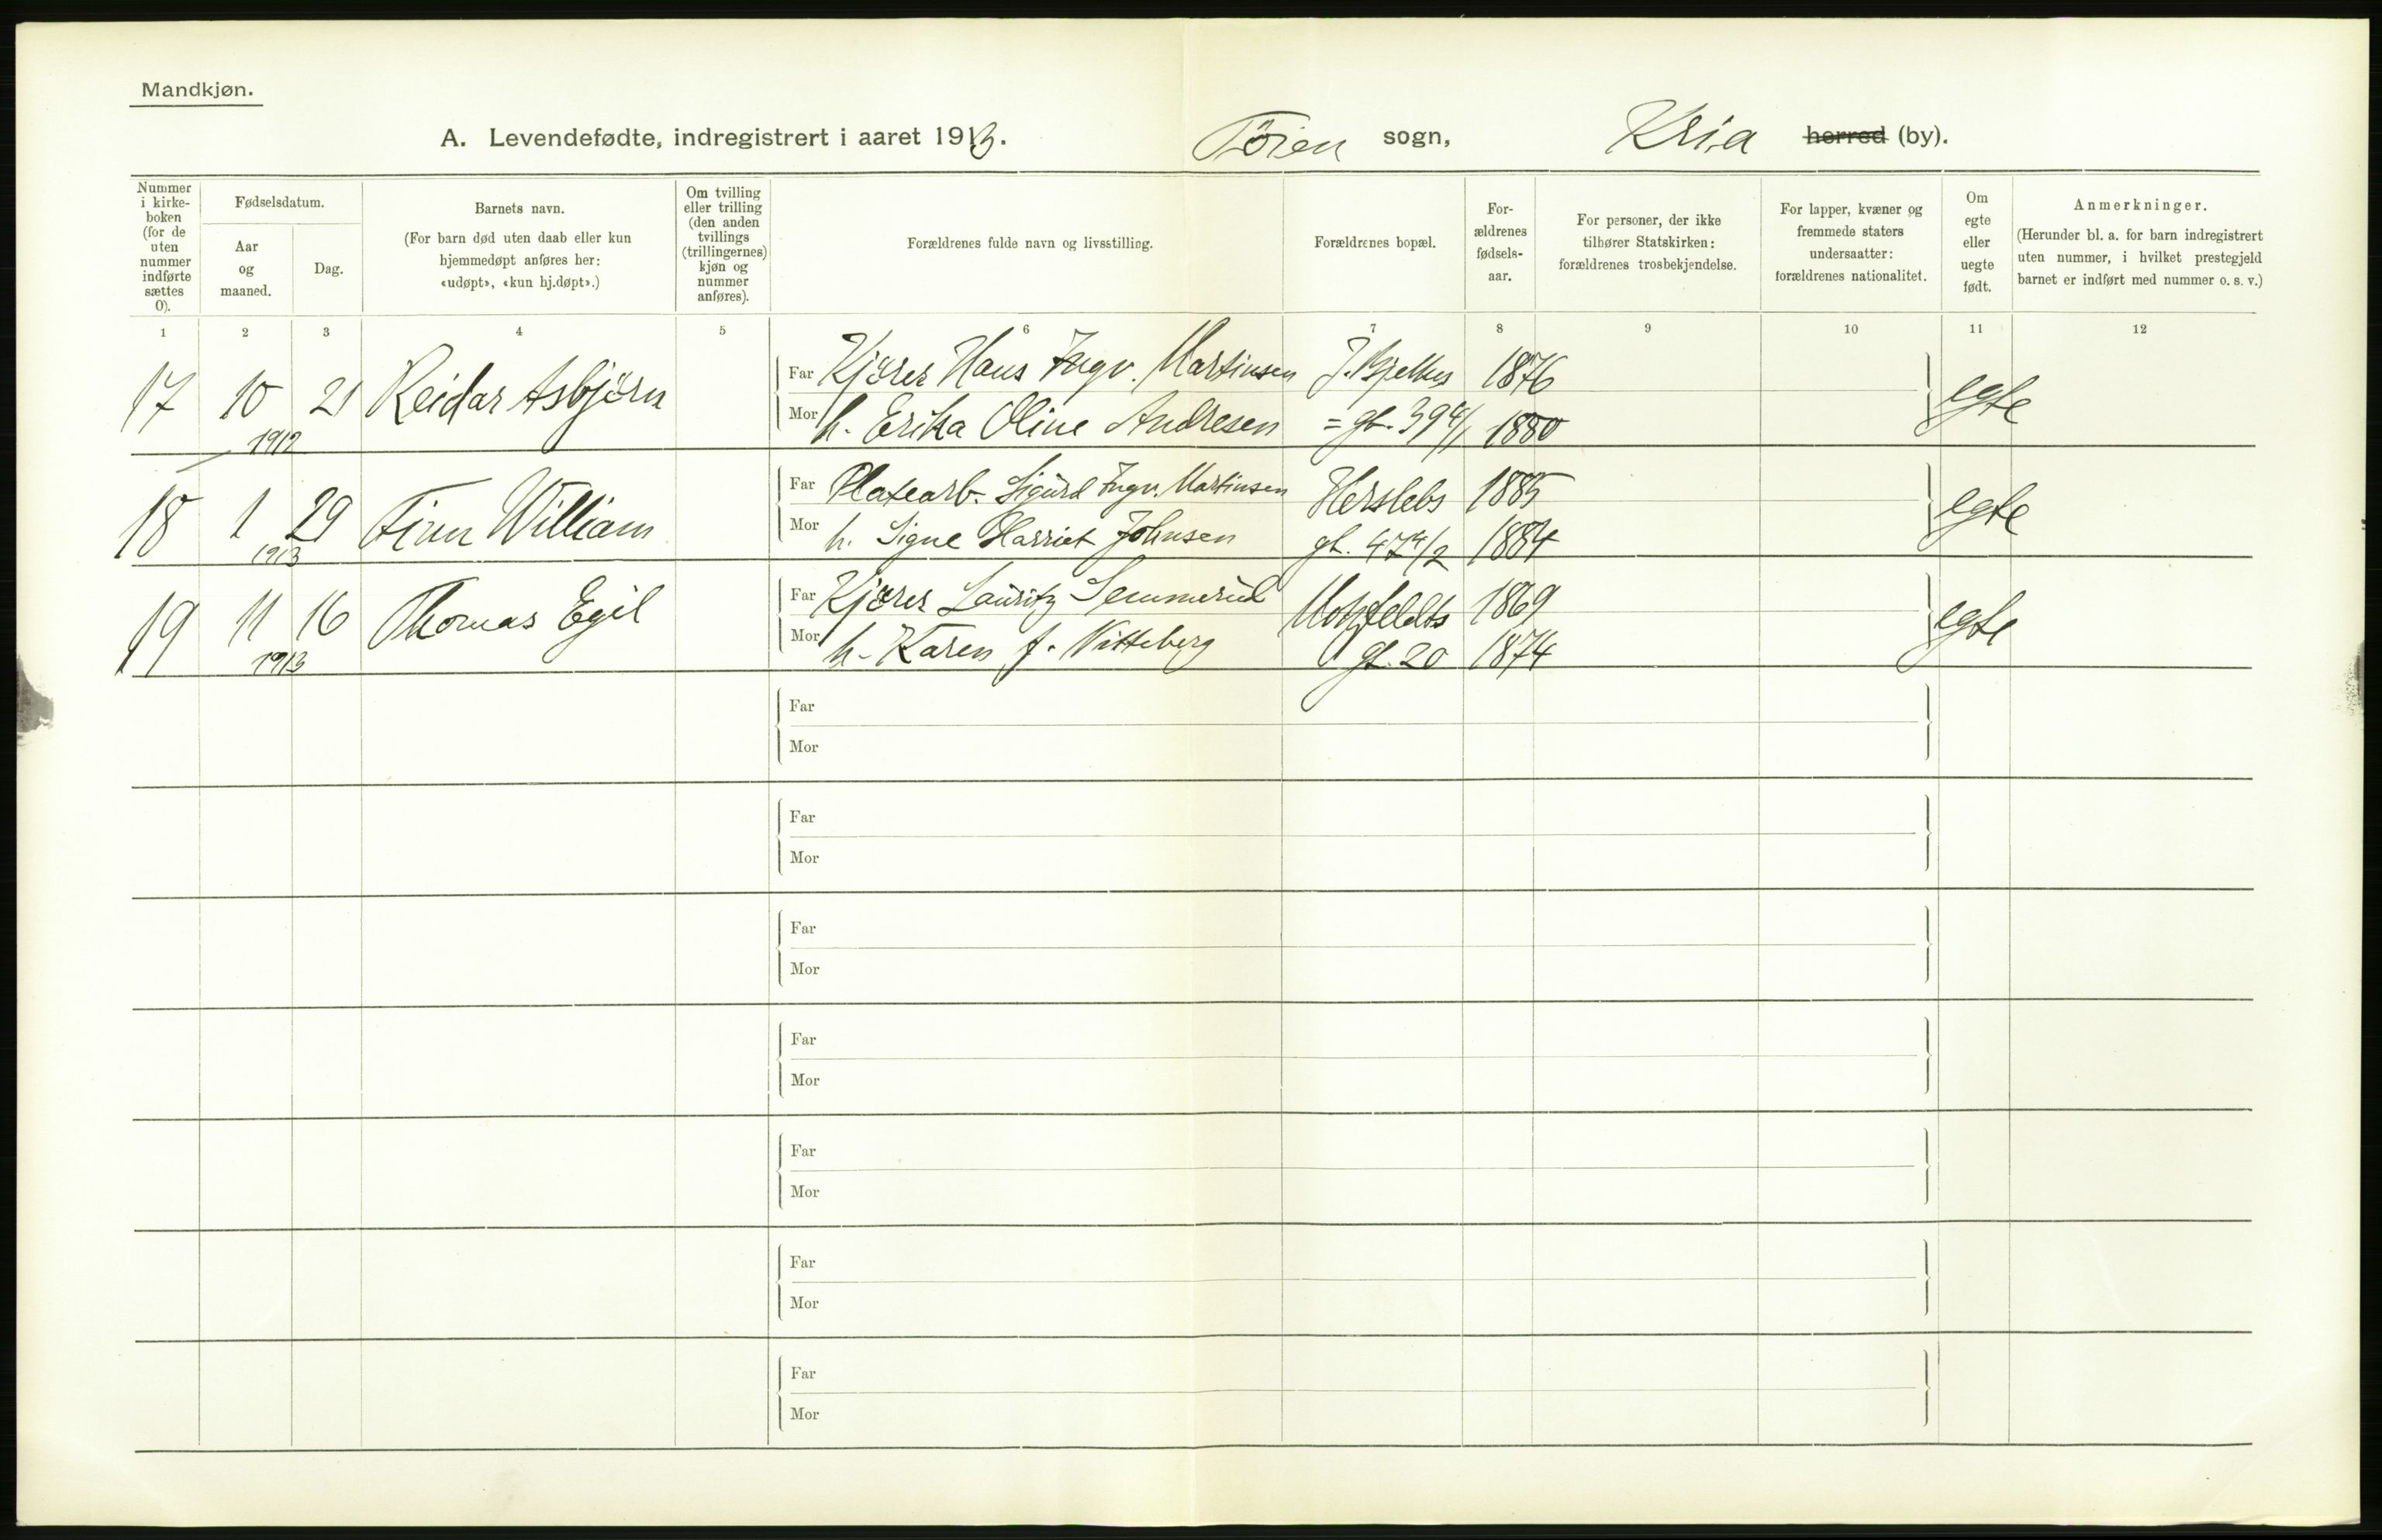 Mandkjøn.
A. Levendefødte, indregistrert i aaret 1913. Tøien sogn, Kria herred (by).
Nummer i kirke-boken (for de uten nummer indførte sættes 0).
Fødselsdatum.
Aar og maaned.
Dag.
Barnets navn.
(For barn død uten daab eller kun hjemmedøpt anføres her: «udøpt», «kun hj.døpt».)
Om tvilling eller trilling (den anden tvillings (trillingernes) kjøn og nummer anføres).
Forældrenes fulde navn og livsstilling.
Forældrenes bopæl.
For-ældrenes fødsels-aar.
For personer, der ikke tilhører Statskirken: forældrenes trosbekjendelse.
For lapper, kvæner og fremmede staters undersaatter: forældrenes nationalitet.
Om egte eller uegte født.
Anmerkninger.
(Herunder bl. a. for barn indregistrert uten nummer, i hvilket prestegjeld barnet er indført med nummer o. s. v.)
1 2 3 4 5 6 7 8 9 10 11 12
17 10 21 Reidar Asbjörn Far Kjörer Hans Ingv. Martinsen J. Bjelkes 1876 egte
1912 Mor h. Erika Oline Andresen = gt. 39 4/1 1880
18 1 29 Finn William Far Platearb. Sigurd Ingv. Martinsen Herslebs 1885 egte
1913 Mor h. Signe Harriet Johnsen gt. 47 4/2 1884
19 11 16 Thomas Egil Far Kjörer Lauritz Semmerud Motzfeldts 1869 egte
1913 Mor h. Karen f. Vitteberg gt. 20 1874
Far
Mor
Far
Mor
Far
Mor
Far
Mor
Far
Mor
Far
Mor
Far
Mor